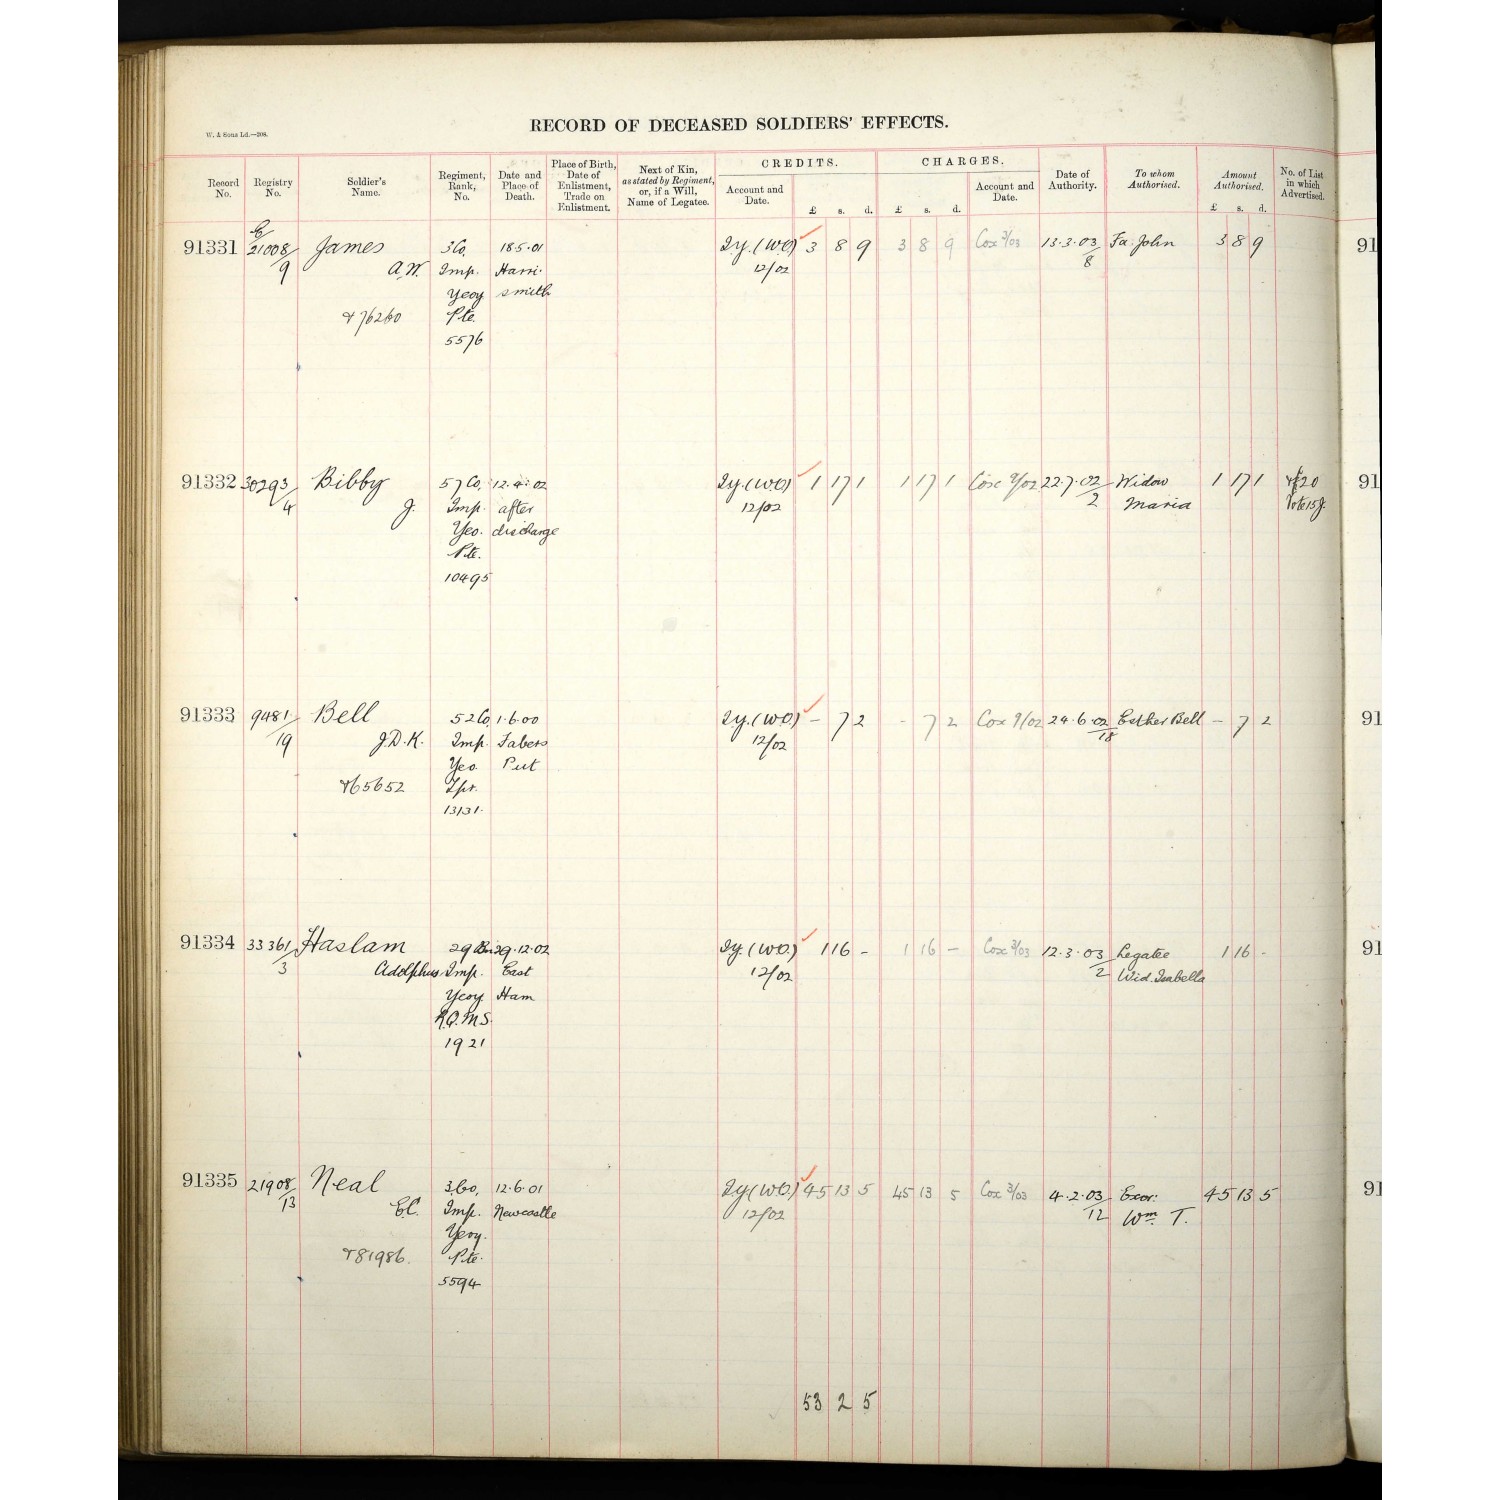 W. & Sons Ld.—208.
RECORD OF DECEASED SOLDIERS' EFFECTS.
Record No.
Registry No.
Soldier's Name.
Regiment, Rank, No.
Date and Place of Death.
Place of Birth, Date of Enlistment, Trade on Enlistment.
Next of Kin, as stated by Regiment, or, if a Will, Name of Legatee.
CREDITS.
Account and Date.
£ s. d.
CHARGES.
£ s. d.
Account and Date.
Date of Authority.
To whom Authorised.
Amount Authorised.
£ s. d.
No. of List in which Advertised.
91331 E/21008/9 James 3 Co, 18.5.01 Iy. (W.O) 3 8 9 3 8 9 Cox 3/03 13.3.03/8 Fa. John 3 8 9 91
A.W. Imp. Harri- 12/02
Yeoy smith
& 76260 Pte.
5576
91332 30293/4 Bibby 57 Co, 12.4.02 Iy. (W.O) 1 17 1 1 17 1 Cox 9/02 22.7.02/2 Widow 1 17 1 20 91
J. Imp. after 12/02 Maria Vote 15 J.
Yeo. discharge
Pte.
10495
91333 9481/19 Bell 52 Co, 1.6.00 Iy. (W.O.) – 7 2 – 7 2 Cox 9/02 24.6.02/18 Esther Bell – 7 2 91
J.D.K. Imp. Fabers 12/02
Yeo. Put
& 65652 Tpr.
13131.
91334 33361/3 Haslam 29 Bn 29.12.02 Iy. (W.O.) 1 16 – 1 16 – Cox 3/03 12.3.03/2 Legatee 1 16 – 91
Adolphus Imp. East 12/02 Wid. Isabella
Yeoy Ham
R.Q.M.S.
1921
91335 21908/13 Neal 3 Co, 12.6.01 Iy (W.O.) 45 13 5 45 13 5 Cox 3/03 4.2.03/12 Exor: 45 13 5 91
E.C. Imp. Newcastle 12/02 Wm T.
Yeoy.
& 81986. Pte.
5594
53 2 5